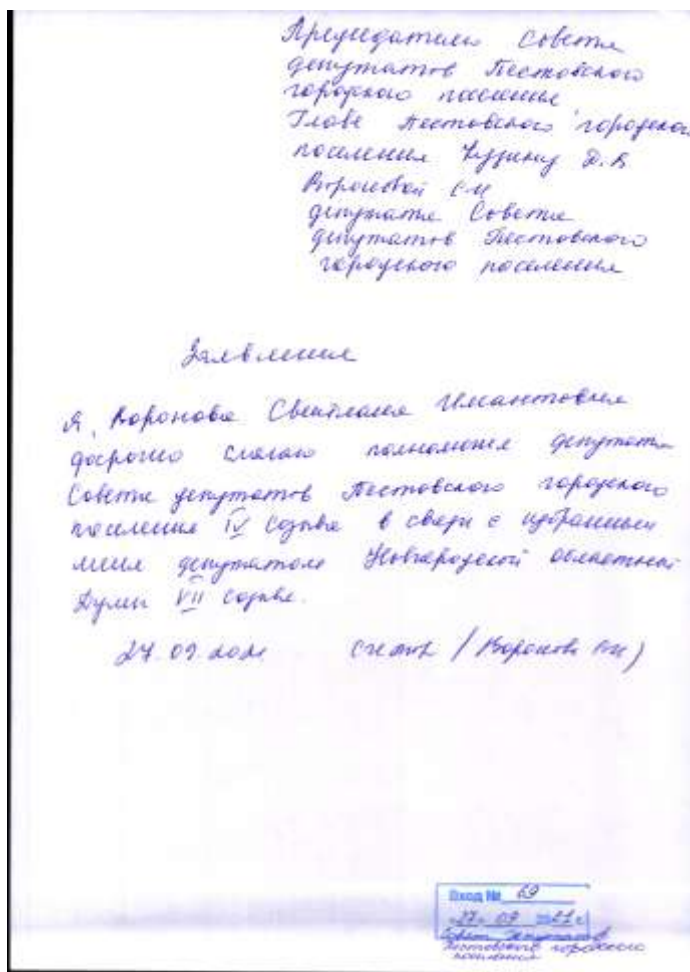 Председателю Совета
депутатов Пестовского
городского поселения
Главе Пестовского городского
поселения Кузину Д.В
Вороновой С.И
депутата Совета
депутатов Пестовского
городского поселения
Заявление
Я, Воронова Светлана Имантовна
досрочно слагаю полномочия депутата
Совета депутатов Пестовского городского
поселения IV созыва в связи с избранием
меня депутатом Новгородской областной
Думы VII созыва.
27.09.2021 / Воронова СИ)
Вход № 69
«27» 09 2021 г
Совет депутатов
Пестовского городского
поселения